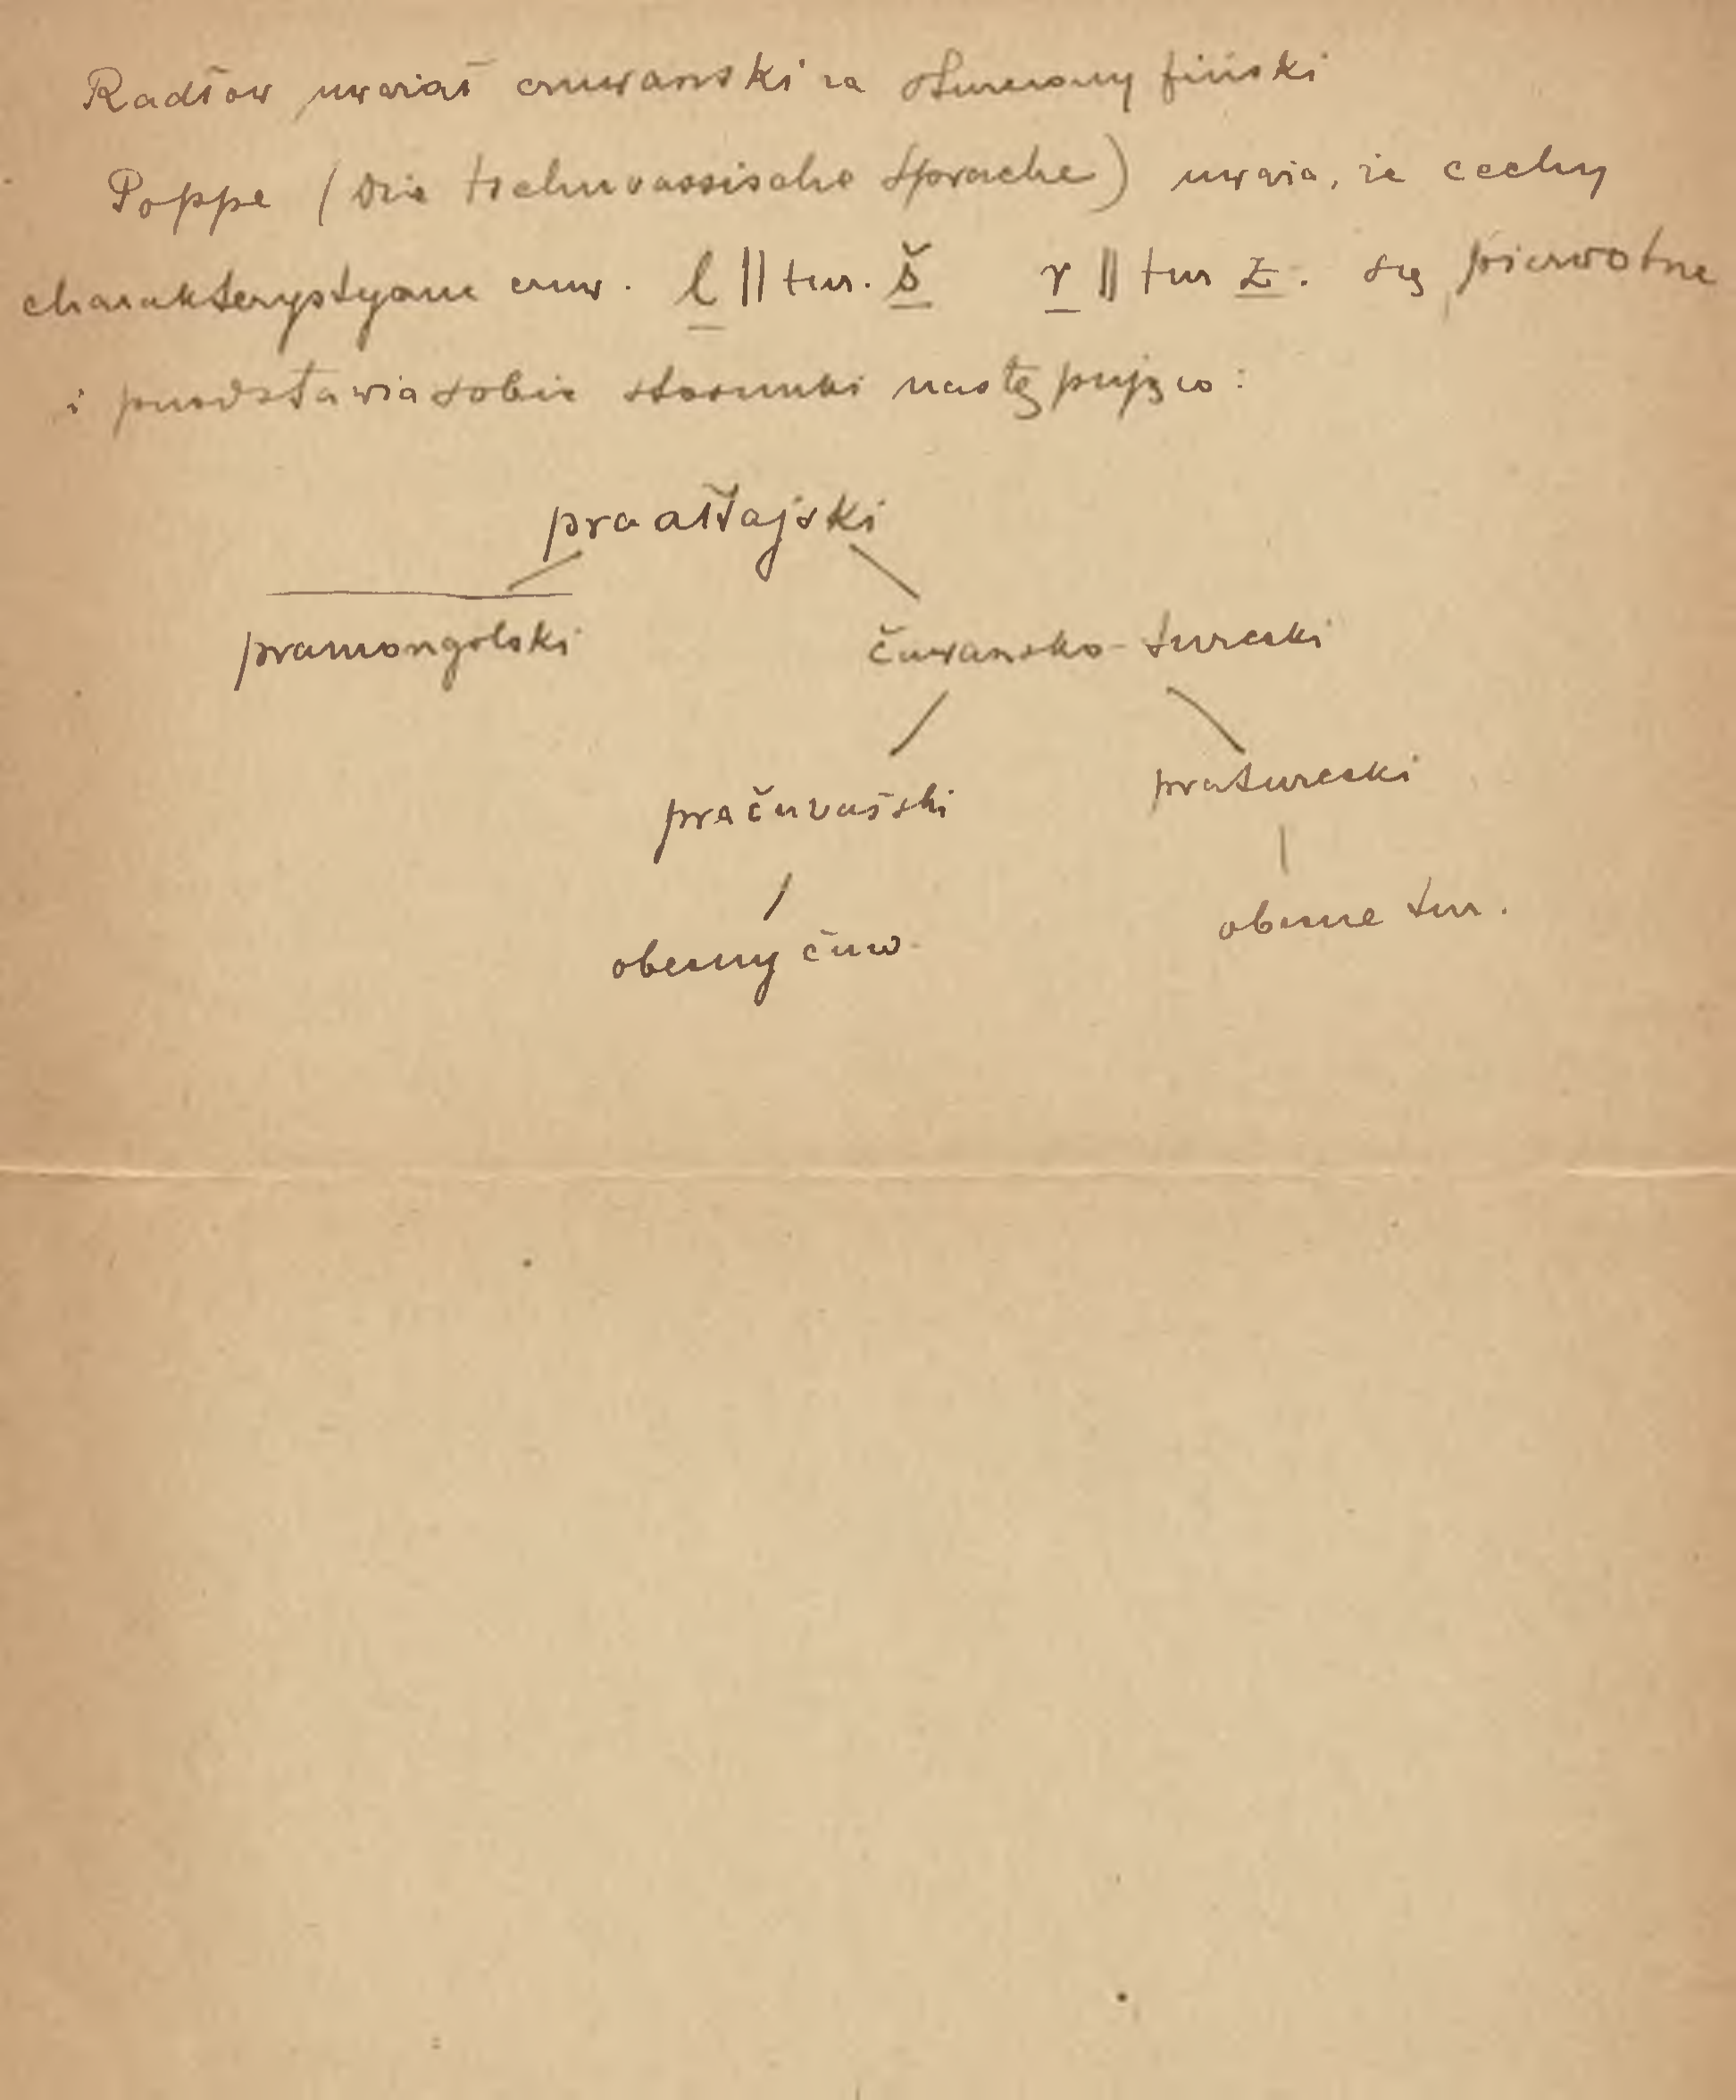 Radłow uważał czuwaski za sturczony fiński
Poppe (Die tschuwassische Sprache) uważa, że cechy
charakterystyczne czuw. l || tur. š r || tur z. są pierwotne
i przedstawia sobie stosunki następująco:
praałtajski
pramongolski čuwasko-turecki
pračuvaški praturecki
obecny čuw. obecne tur.